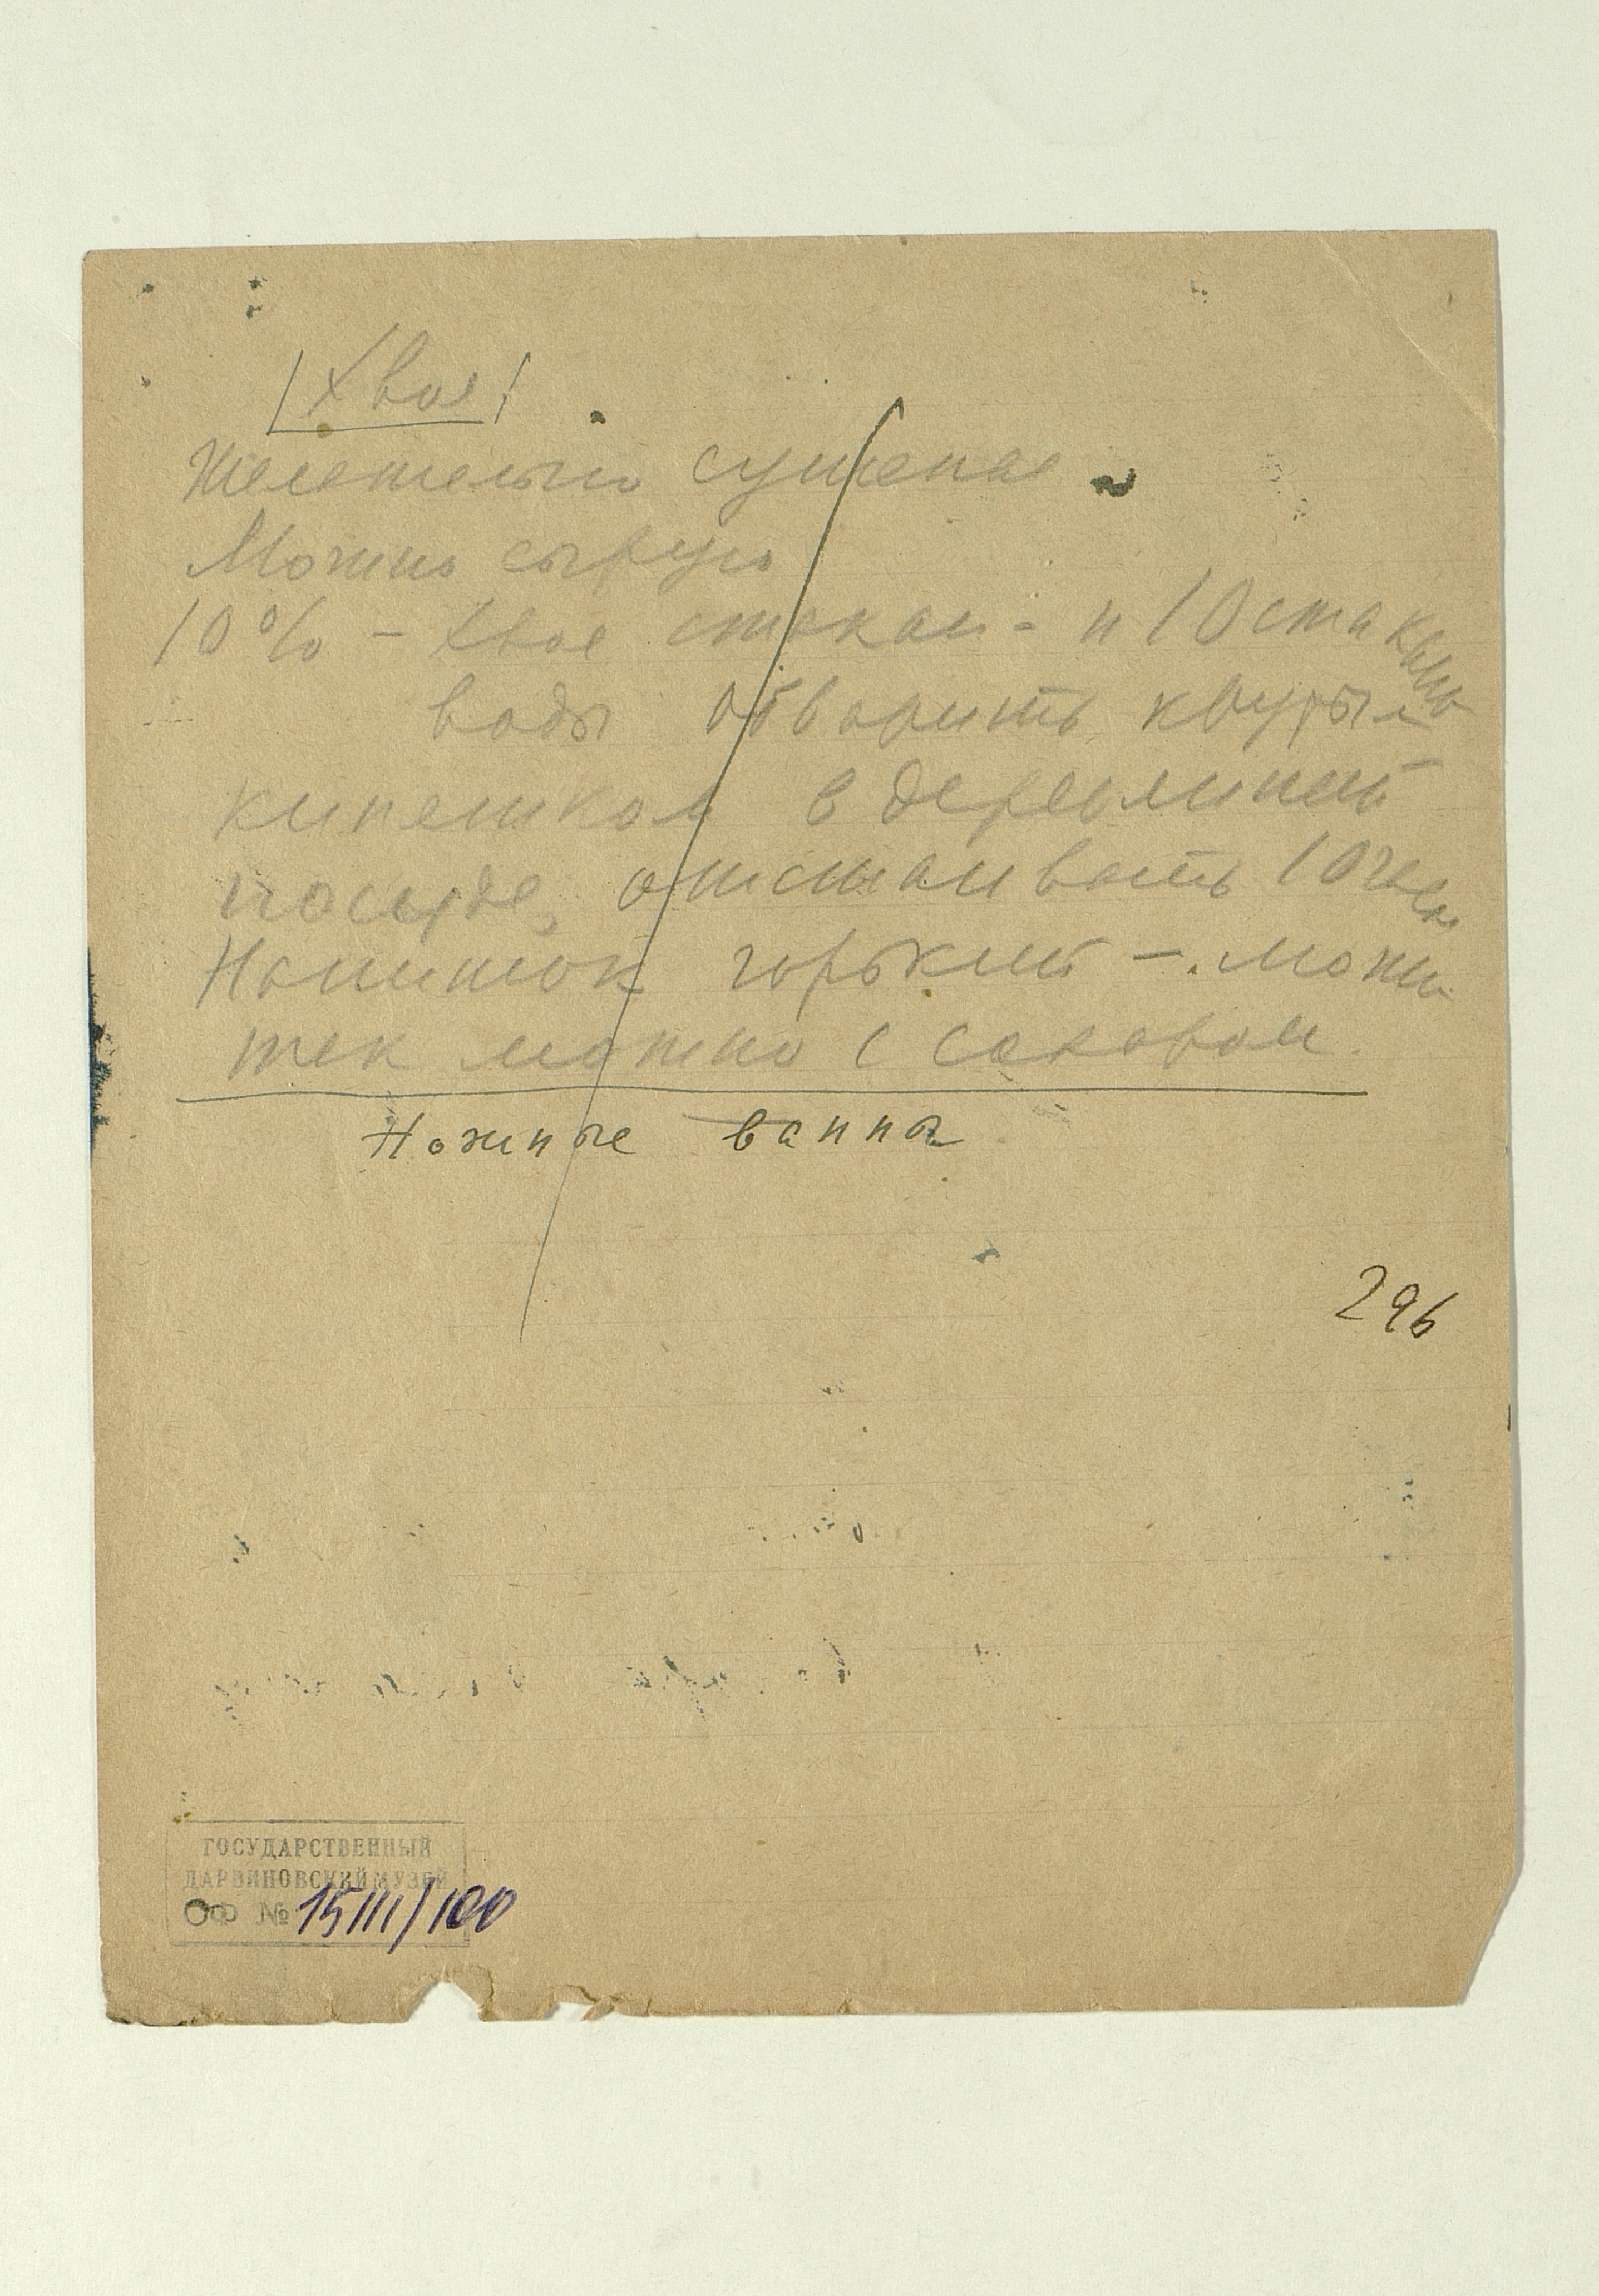 Хвоя
Желательно сушеная
Можно сырую
10% – Хвоя стакан – и 10 стаканов
воды отварить крутым
кипятком в деревянной
посуде, отстаивать 10 час
Напиток горький – можно
так можно с сахаром.
Ножные ванны
296
ГОСУДАРСТВЕННЫЙ
ДАРВИНОВСКИЙ МУЗЕЙ
ОФ № 15111/100